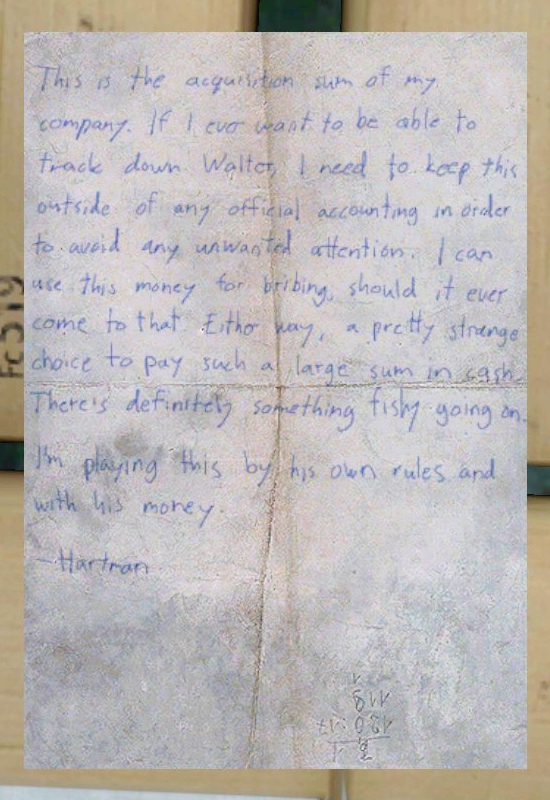 This is the acquisition sum of my
company. If I ever want to be able to
track down Walter, I need to keep this
outside of any official accounting in order
to avoid any unwanted attention. I can
use this money for bribing, should it ever
come to that. Either way, a pretty strange
choice to pay such a large sum in cash.
There's definitely something fishy going on.
I'm playing this by his own rules and
with his money.
-Hartman